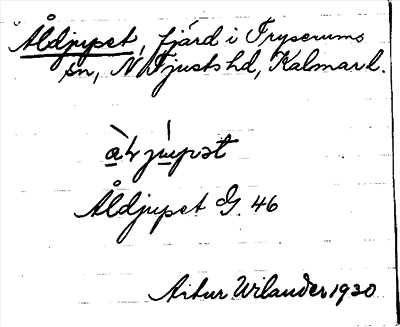 Åldjupet, fjärd i Tryserums
sn, N Tjusts hd, Kalmar l.
Åldjupet G. 46
Artur Wilander 1930